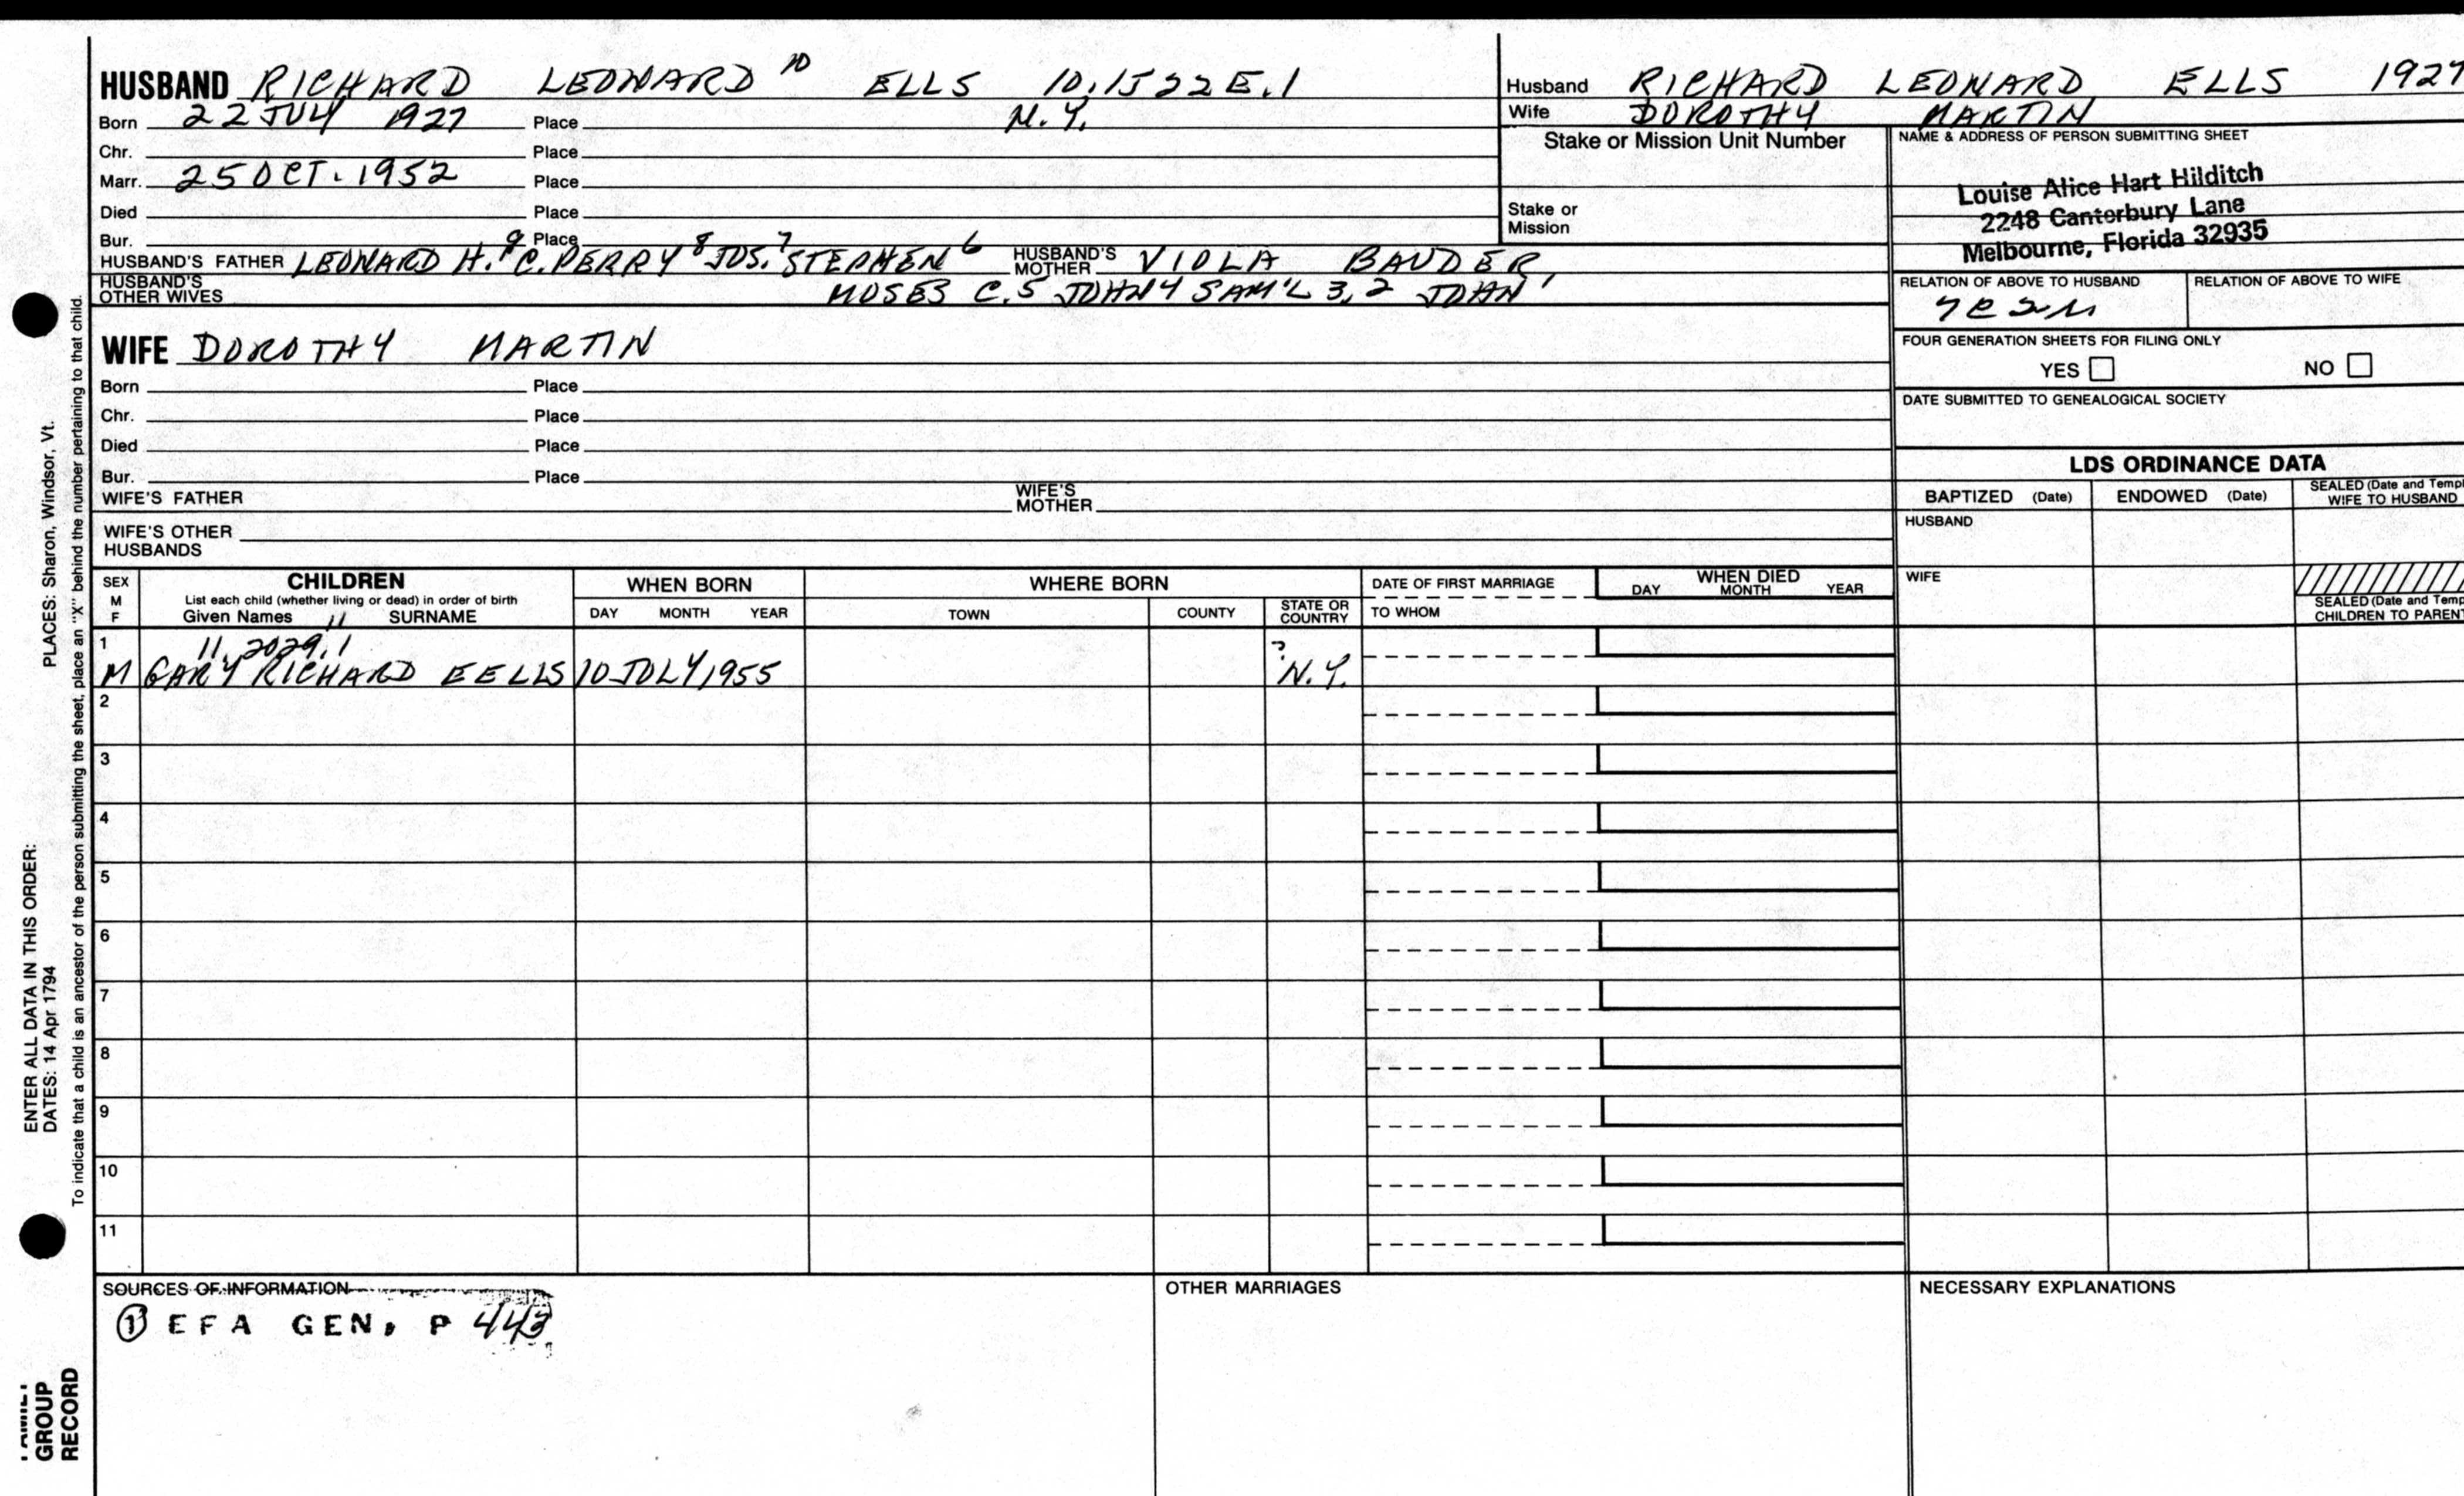 HUSBAND RICHARD LEONARD 10 ELLS 10.1522E.1
Born 22 JULY 1927 Place N.Y.
Chr. Place
Marr. 25 OCT. 1952 Place
Died Place
Bur. Place
HUSBAND'S FATHER LEONARD H.9 C. PERRY 8 JOS.7 STEPHEN 6 HUSBAND'S MOTHER VIOLA BAUDER
HUSBAND'S OTHER WIVES MOSES C.5 JOHN 4 SAM'L 3,2 JOHN 1
WIFE DOROTHY MARTIN
Born Place
Chr. Place
Died Place
Bur. Place
WIFE'S FATHER WIFE'S MOTHER
WIFE'S OTHER HUSBANDS
Husband RICHARD LEONARD ELLS 1927
Wife DOROTHY MARTIN
Stake or Mission Unit Number
Stake or Mission
NAME & ADDRESS OF PERSON SUBMITTING SHEET
Louise Alice Hart Hilditch
2248 Canterbury Lane
Melbourne, Florida 32935
RELATION OF ABOVE TO HUSBAND RELATION OF ABOVE TO WIFE
FOUR GENERATION SHEETS FOR FILING ONLY
YES NO
DATE SUBMITTED TO GENEALOGICAL SOCIETY
LDS ORDINANCE DATA
BAPTIZED (Date) ENDOWED (Date) SEALED (Date and Templ
WIFE TO HUSBAND
HUSBAND
WIFE
SEALED (Date and Temp
CHILDREN TO PARENT
SEX M F CHILDREN WHEN BORN WHERE BORN DATE OF FIRST MARRIAGE WHEN DIED
List each child (whether living or dead) in order of birth
Given Names 11 SURNAME DAY MONTH YEAR TOWN COUNTY STATE OR COUNTRY TO WHOM DAY MONTH YEAR
1 11.2029.1 ?
M GARY RICHARD EELLS 10 JULY 1955 N.Y.
2
3
4
5
6
7
8
9
10
11
SOURCES OF INFORMATION OTHER MARRIAGES NECESSARY EXPLANATIONS
① EFA GEN, P 443
PLACES: Sharon, Windsor, Vt.
ENTER ALL DATA IN THIS ORDER:
DATES: 14 Apr 1794
To indicate that a child is an ancestor of the person submitting the sheet, place an "X" behind the number pertaining to that child.
FAMILY
GROUP
RECORD